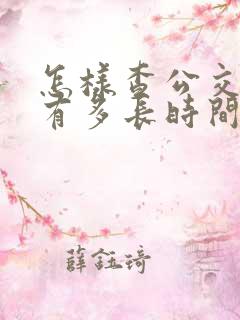 怎樣查公交
有多長時間
薛鈺琦